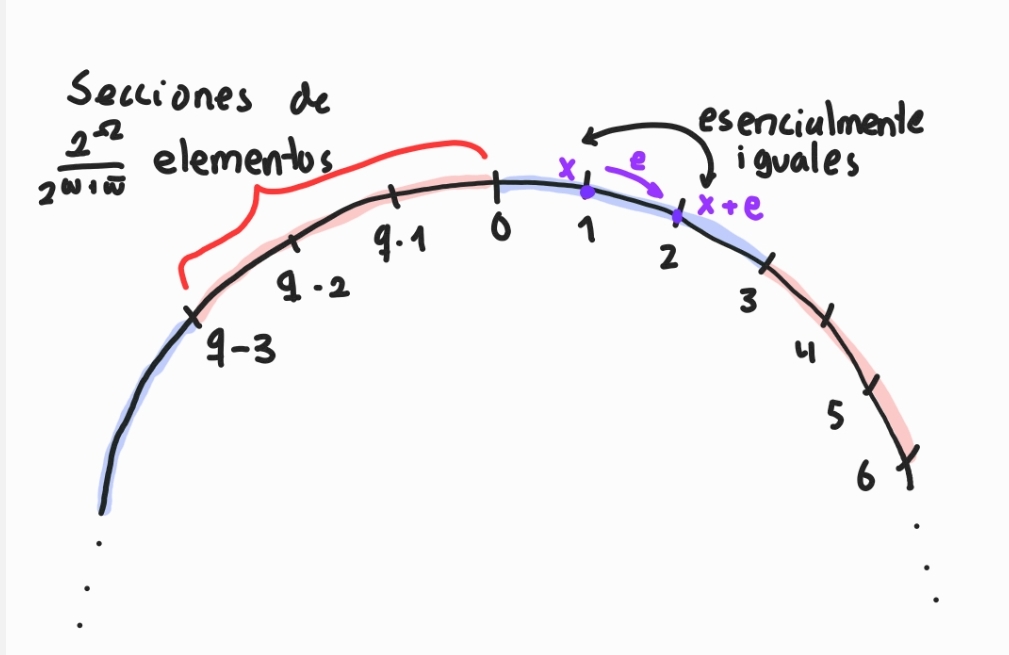 Secciones de
2^Ω / 2^(w+w̅) elementos
esencialmente
iguales
x e x+e
q-3 q-2 q-1 0 1 2 3 4 5 6